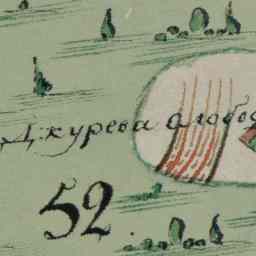 Джурева слобо
52